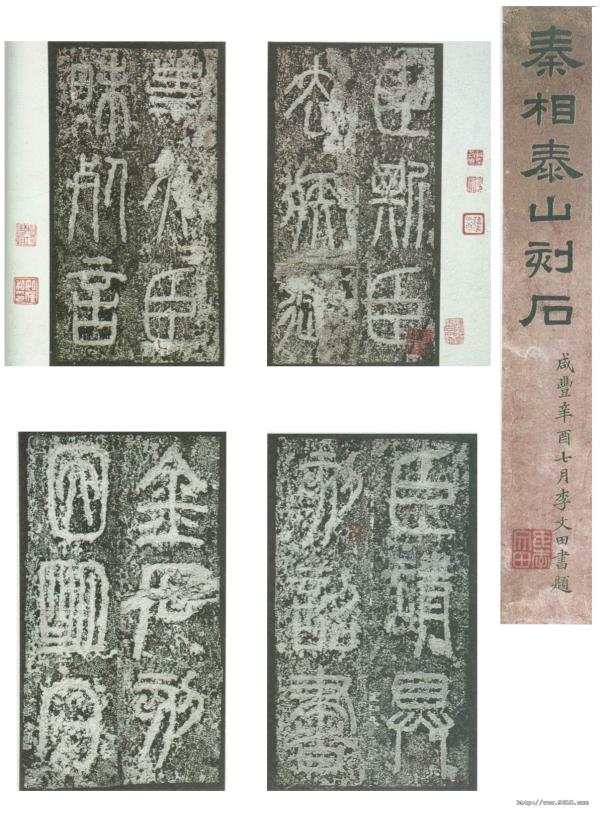 秦相泰山刻石
咸豐辛酉七月李文田書題
臣斯臣
去疾御
史夫臣
昧死言
臣請具
刻詔書
金石刻
因明白
http://www.5610.com